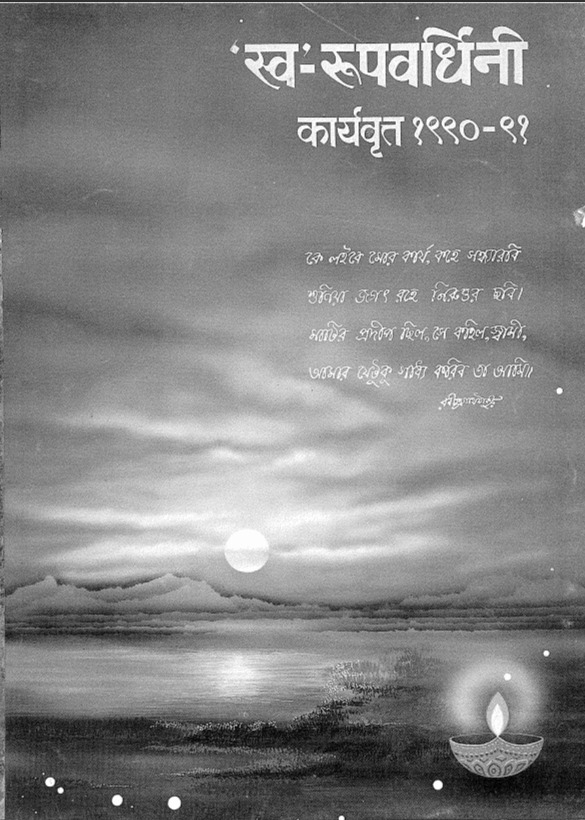 'स्व'-रूपवर्धिनी
कार्यवृत्त १९९०-९१
কে লইবে মোর কার্য, কহে সন্ধ্যারবি
শুনিয়া জগৎ রহে নিরুত্তর ছবি।
মাটির প্রদীপ ছিল, সে কহিল, স্বামী,
আমার যেটুকু সাধ্য করিব তা আমি॥
রবীন্দ্রনাথ ঠাকুর